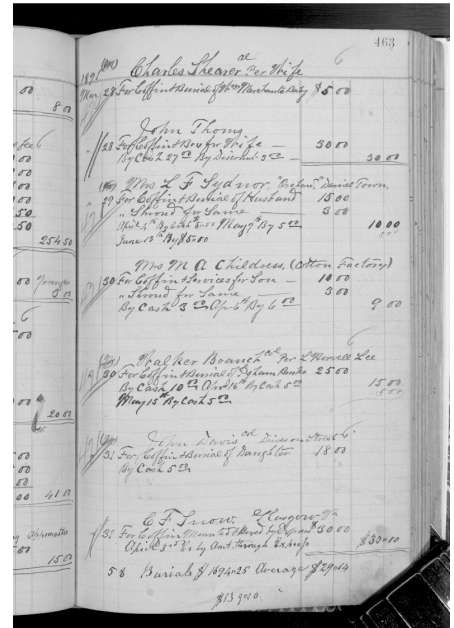 463
1891 Charles Shearer col Per Wife 6
Mar 28 For Coffin & Burial of Merchants Baby $5 00
John Thomy
28 For Coffin & Box for Wife — 30 00
By Cash 27 00 By Discount 3 00 — 30 00
Mrs L F Sydnor, Daniel Town
29 For Coffin & Burial of Husband 15 00
" Shroud for Same 3 00
April 4th By Cash 5 00 May 9th By 5 00 10 00
June 13th By $5 00
Mrs M A Childress, (Cotton Factory)
30 For Coffin & Services for Son — 10 00
" Shroud for Same 3 00
By Cash 3 00 Apr 6th By 6 00 9 00
Walker Branch col Per L Horvell Lee 6
30 For Coffin & Burial of Banks 25 00
By Cash 10 00 Apr 16th By Cash 5 00 15 00
May 15th By Cash 5 00
John Davis col Division Street 6
31 For Coffin & Burial of Daughter 18 00
By Cash 5 00
C F Snow, Glasgow Va
31 For Coffin Mounted & Boxed by Express $30 00
April 3rd Cr by Amt through Express $30 00
58 Burials $1694.25 Average $29.14
$13 90.
00
8 00
6
00
00
00
50
50
254 50
00
3 00
6
00
00
20 00
00
00
00
00 41 00
Appomattox
15 00